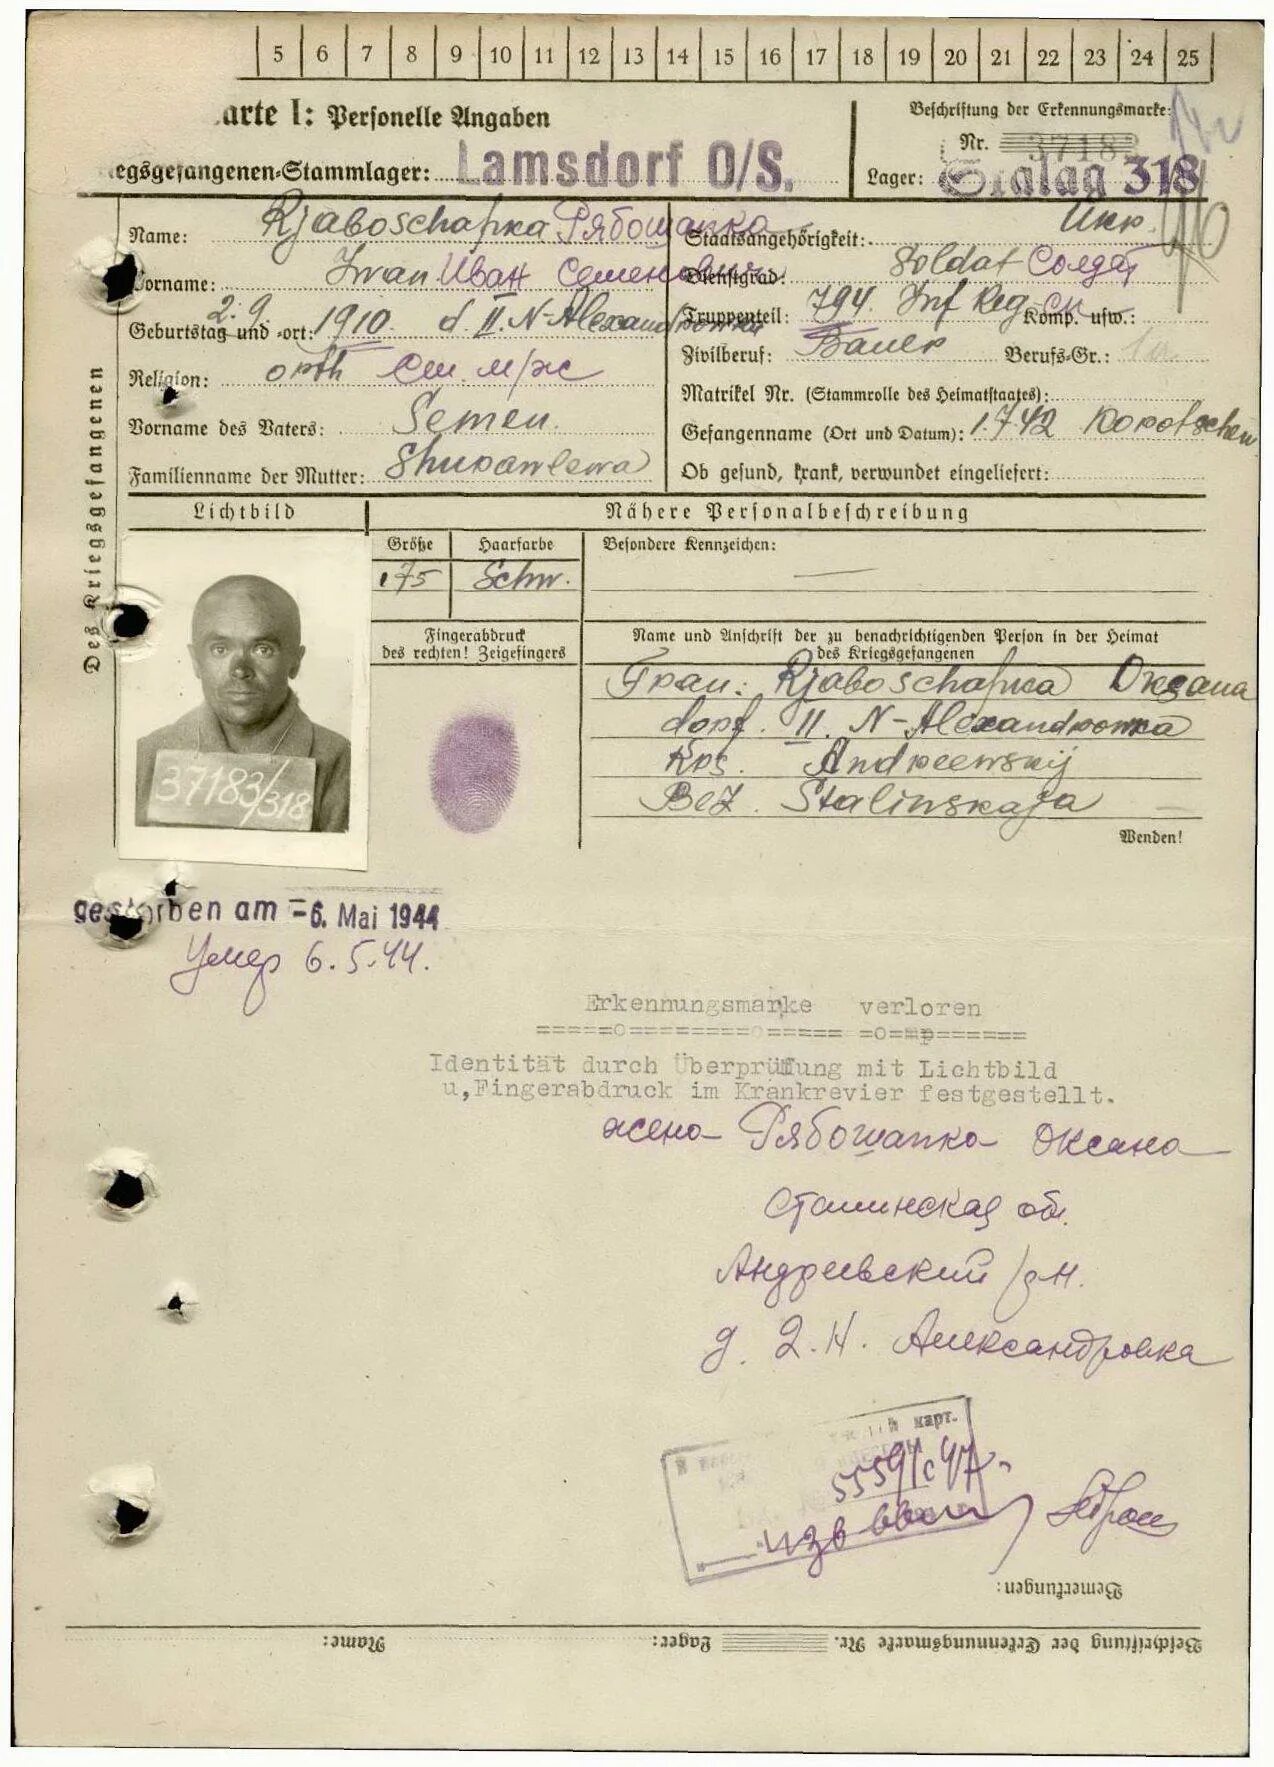 5 6 7 8 9 10 11 12 13 14 15 16 17 18 19 20 21 22 23 24 25
arte I: Personelle Angaben
Beschriftung der Erkennungsmarke:
Nr. 37183
egsgefangenen-Stammlager: Lamsdorf O/S.
Lager: Stalag 318
Des Kriegsgefangenen
Name: Rjaboschapka Рябошапка
Vorname: Iwan Иван Семенович
Geburtstag und -ort: 2.9. 1910. d. II. N-Alexandrowka
Religion: orth
Vorname des Vaters: Semen.
Familienname der Mutter: Shurawlewa
Staatsangehörigkeit: Ukr.
Dienstgrad: Soldat Солдат
Truppenteil: 794. Inf Reg. Komp. usw.:
Zivilberuf: Bauer Berufs-Gr.: 1a
Matrikel Nr. (Stammrolle des Heimatstaates):
Gefangenname (Ort und Datum): 1.7.42 Korotschen
Ob gesund, krank, verwundet eingeliefert:
Lichtbild
Nähere Personalbeschreibung
Größe Haarfarbe Besondere Kennzeichen:
175 Schw. —
Fingerabdruck
des rechten! Zeigefingers
Name und Anschrift der zu benachrichtigenden Person in der Heimat
des Kriegsgefangenen
Frau: Rjaboschapka Oksana
dorf. II. N-Alexandrowka
Krs. Andreewskij
Bez. Stalinskaja
Wenden!
37183/318
gestorben am -6. Mai 1944
Умер 6.5.44.
Erkennungsmarke verloren
=====o========o===== =o=mp======
Identität durch Überprüfung mit Lichtbild
u,Fingerabdruck im Krankrevier festgestellt.
жена Рябошапка Оксана
Сталинская об.
Андреевский р-н.
д. 2.Н. Александровка
карт.
Bemerkungen:
Beschriftung der Erkennungsmarke Nr. Lager: Name: